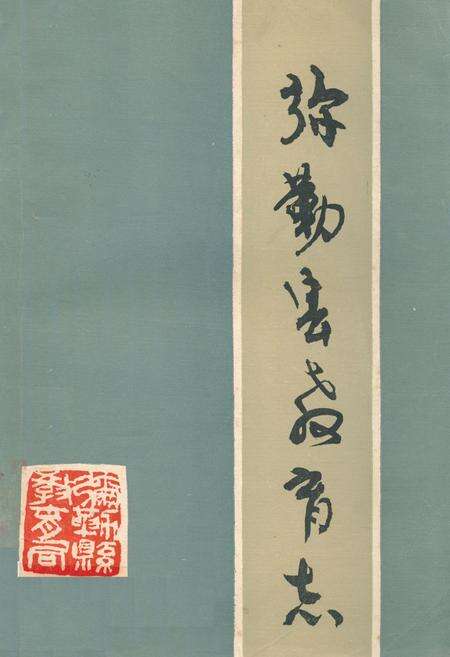 弥勒县教育志
彌勒縣
教育局